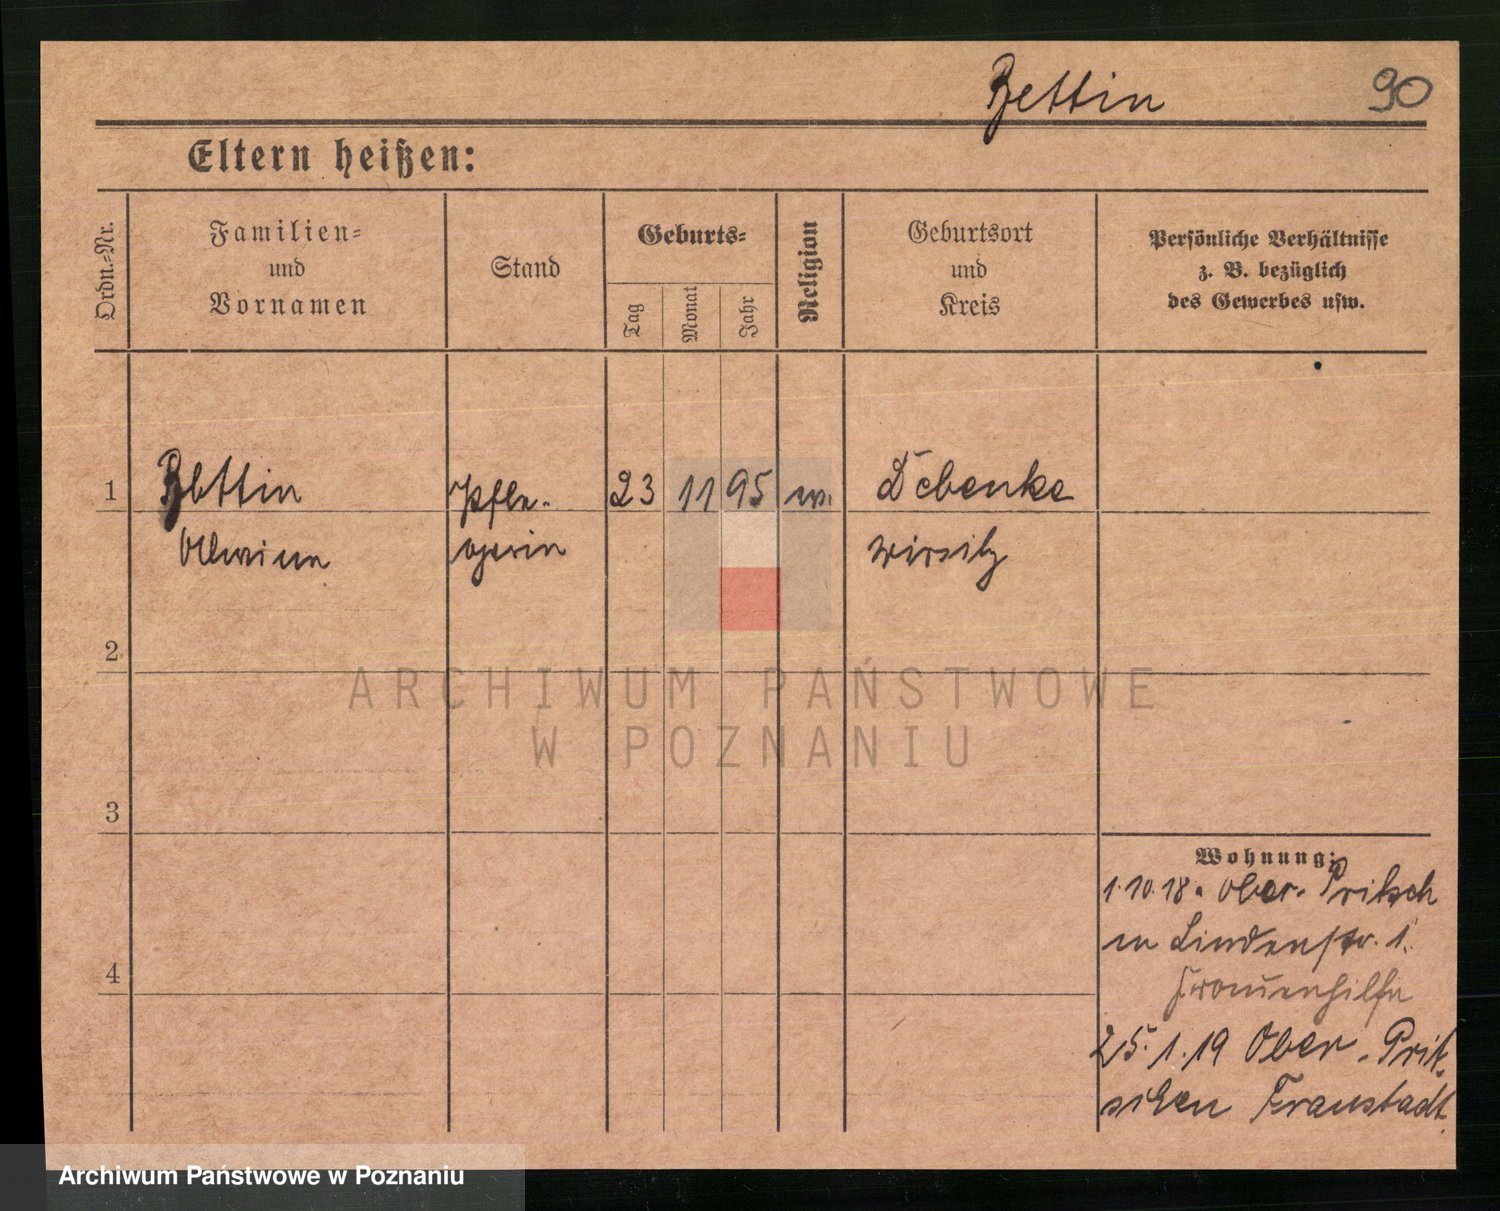 Bettin 90
Eltern heißen:
Ordn.=Nr.
Familien=
und
Vornamen
Stand
Geburts=
Tag
Monat
Jahr
Religion
Geburtsort
und
Kreis
Persönliche Verhältnisse
z. B. bezüglich
des Gewerbes usw.
1 Bettin Pfle- 23 11 95 Debenke
gerin Wirsitz
2
3
4
Wohnung:
1.10.18. Ober-Pritsch
Lindenstr. 1.
Frauenhilfe
25.1.19 Ober-Prit-
schen Fraustadt.
ARCHIWUM PAŃSTWOWE
W POZNANIU
Archiwum Państwowe w Poznaniu